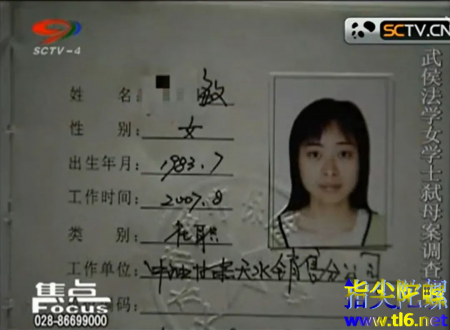 SCTV-4
SCTV.CN
武侯法学女学士弑母案调查
姓 名 敏
性 别 女
出生年月: 1983.7
工作时间: 2007.8
类 别: 在职
工作单位: 中油甘肃天水销售分公司
码:
焦点
Focus
028-86699000
指尖陀螺
www.tl6.net